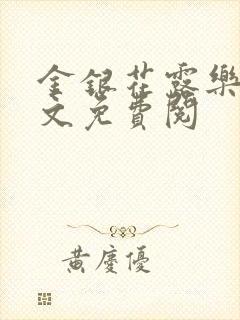 金銀花露樂
文免費閱
黃慶優